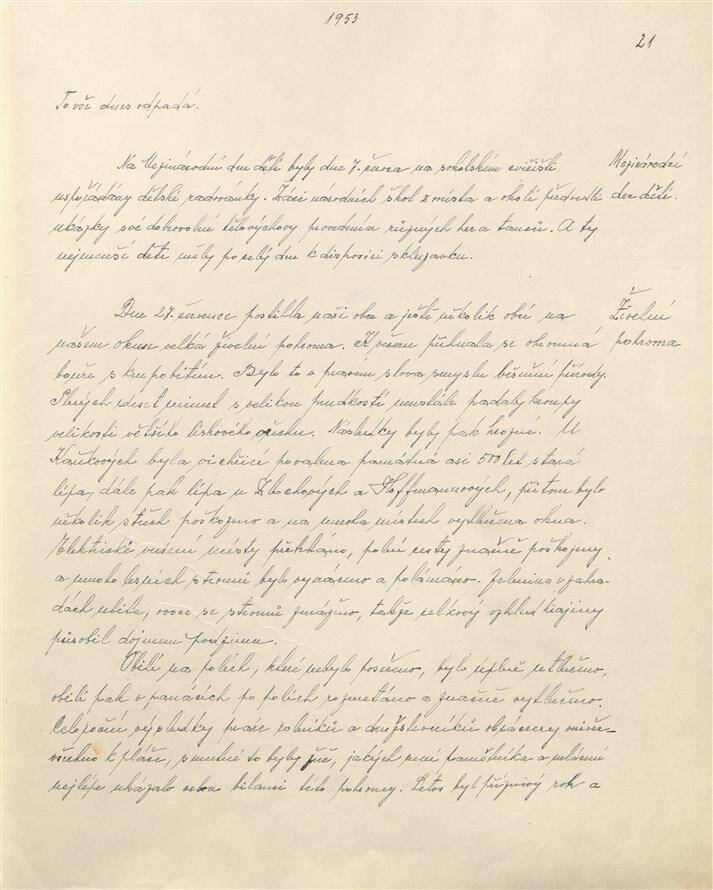 1953
21
To vše dnes odpadá.
Na Mezinárodní den dětí byly dne 7. června na sokolském cvičišti
Mezinárodní
uspořádány dětské radovánky. Žáci národních škol z místa a okolí předvedli
den dětí.
ukázky své dobrovolné tělovýchovy provedením různých her a tanců. A ty
nejmenší děti měly po celý den k disposici skluzavku.
Dne 27. července postihla naši obec a ještě několik obcí na
Živelní
našem okrese velká živelní pohroma. K večeru přihnala se ohromná
pohroma
bouře s krupobitím. Bylo to v pravém slova smyslu běsnění přírody.
Plných deset minut s velikou prudkostí neustále padaly kroupy
velikosti většího lískového ořechu. Následky byly pak hrozné. U
Kaňkových byla vichřicí povalena památná asi 500 let stará
lípa, dále pak lípa u Zlochových a Hoffmannových, přitom bylo
několik střech poškozeno a na mnoha místech vytlučena okna.
Elektrické vedení místy přetrháno, polní cesty značně poškozeny
a mnoho lesních stromů bylo vyvráceno a polámáno. Zelenina v zahra-
dách ubita, ovoce se stromů sraženo, takže celkový vzhled krajiny
působil dojmem podzimu.
Obilí na polích, které nebylo posečeno, bylo úplně utlučeno,
obilí pak v panácích po polích rozmetáno a značně vytlučeno.
Celoroční výsledky práce rolníků a družstevníků obráceny vniveč
všechno k pláči, smutné to byly žně, jakých není pamětníka a
nejlépe ukázalo bilanci této pohromy. Letos byl příznivý rok a